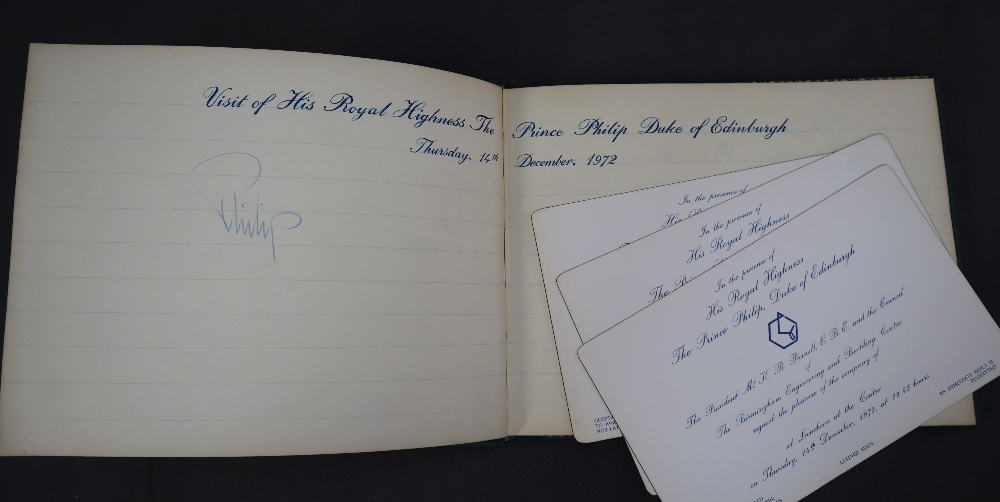 Visit of His Royal Highness The Prince Philip Duke of Edinburgh
Thursday, 14th December, 1972
Philip
In the presence of
In the presence of
His Royal Highness
The
In the presence of
His Royal Highness
The Prince Philip, Duke of Edinburgh
The President Mr. K. B. C.B.E. and the Council
of
The Birmingham Engineering and Building Centre
request the pleasure of the company of
at Luncheon at the Centre
on Thursday, 14th December, 1972, at 12.45 hours
AN IMMEDIATE REPLY IS
REQUESTED
LOUNGE SUITS